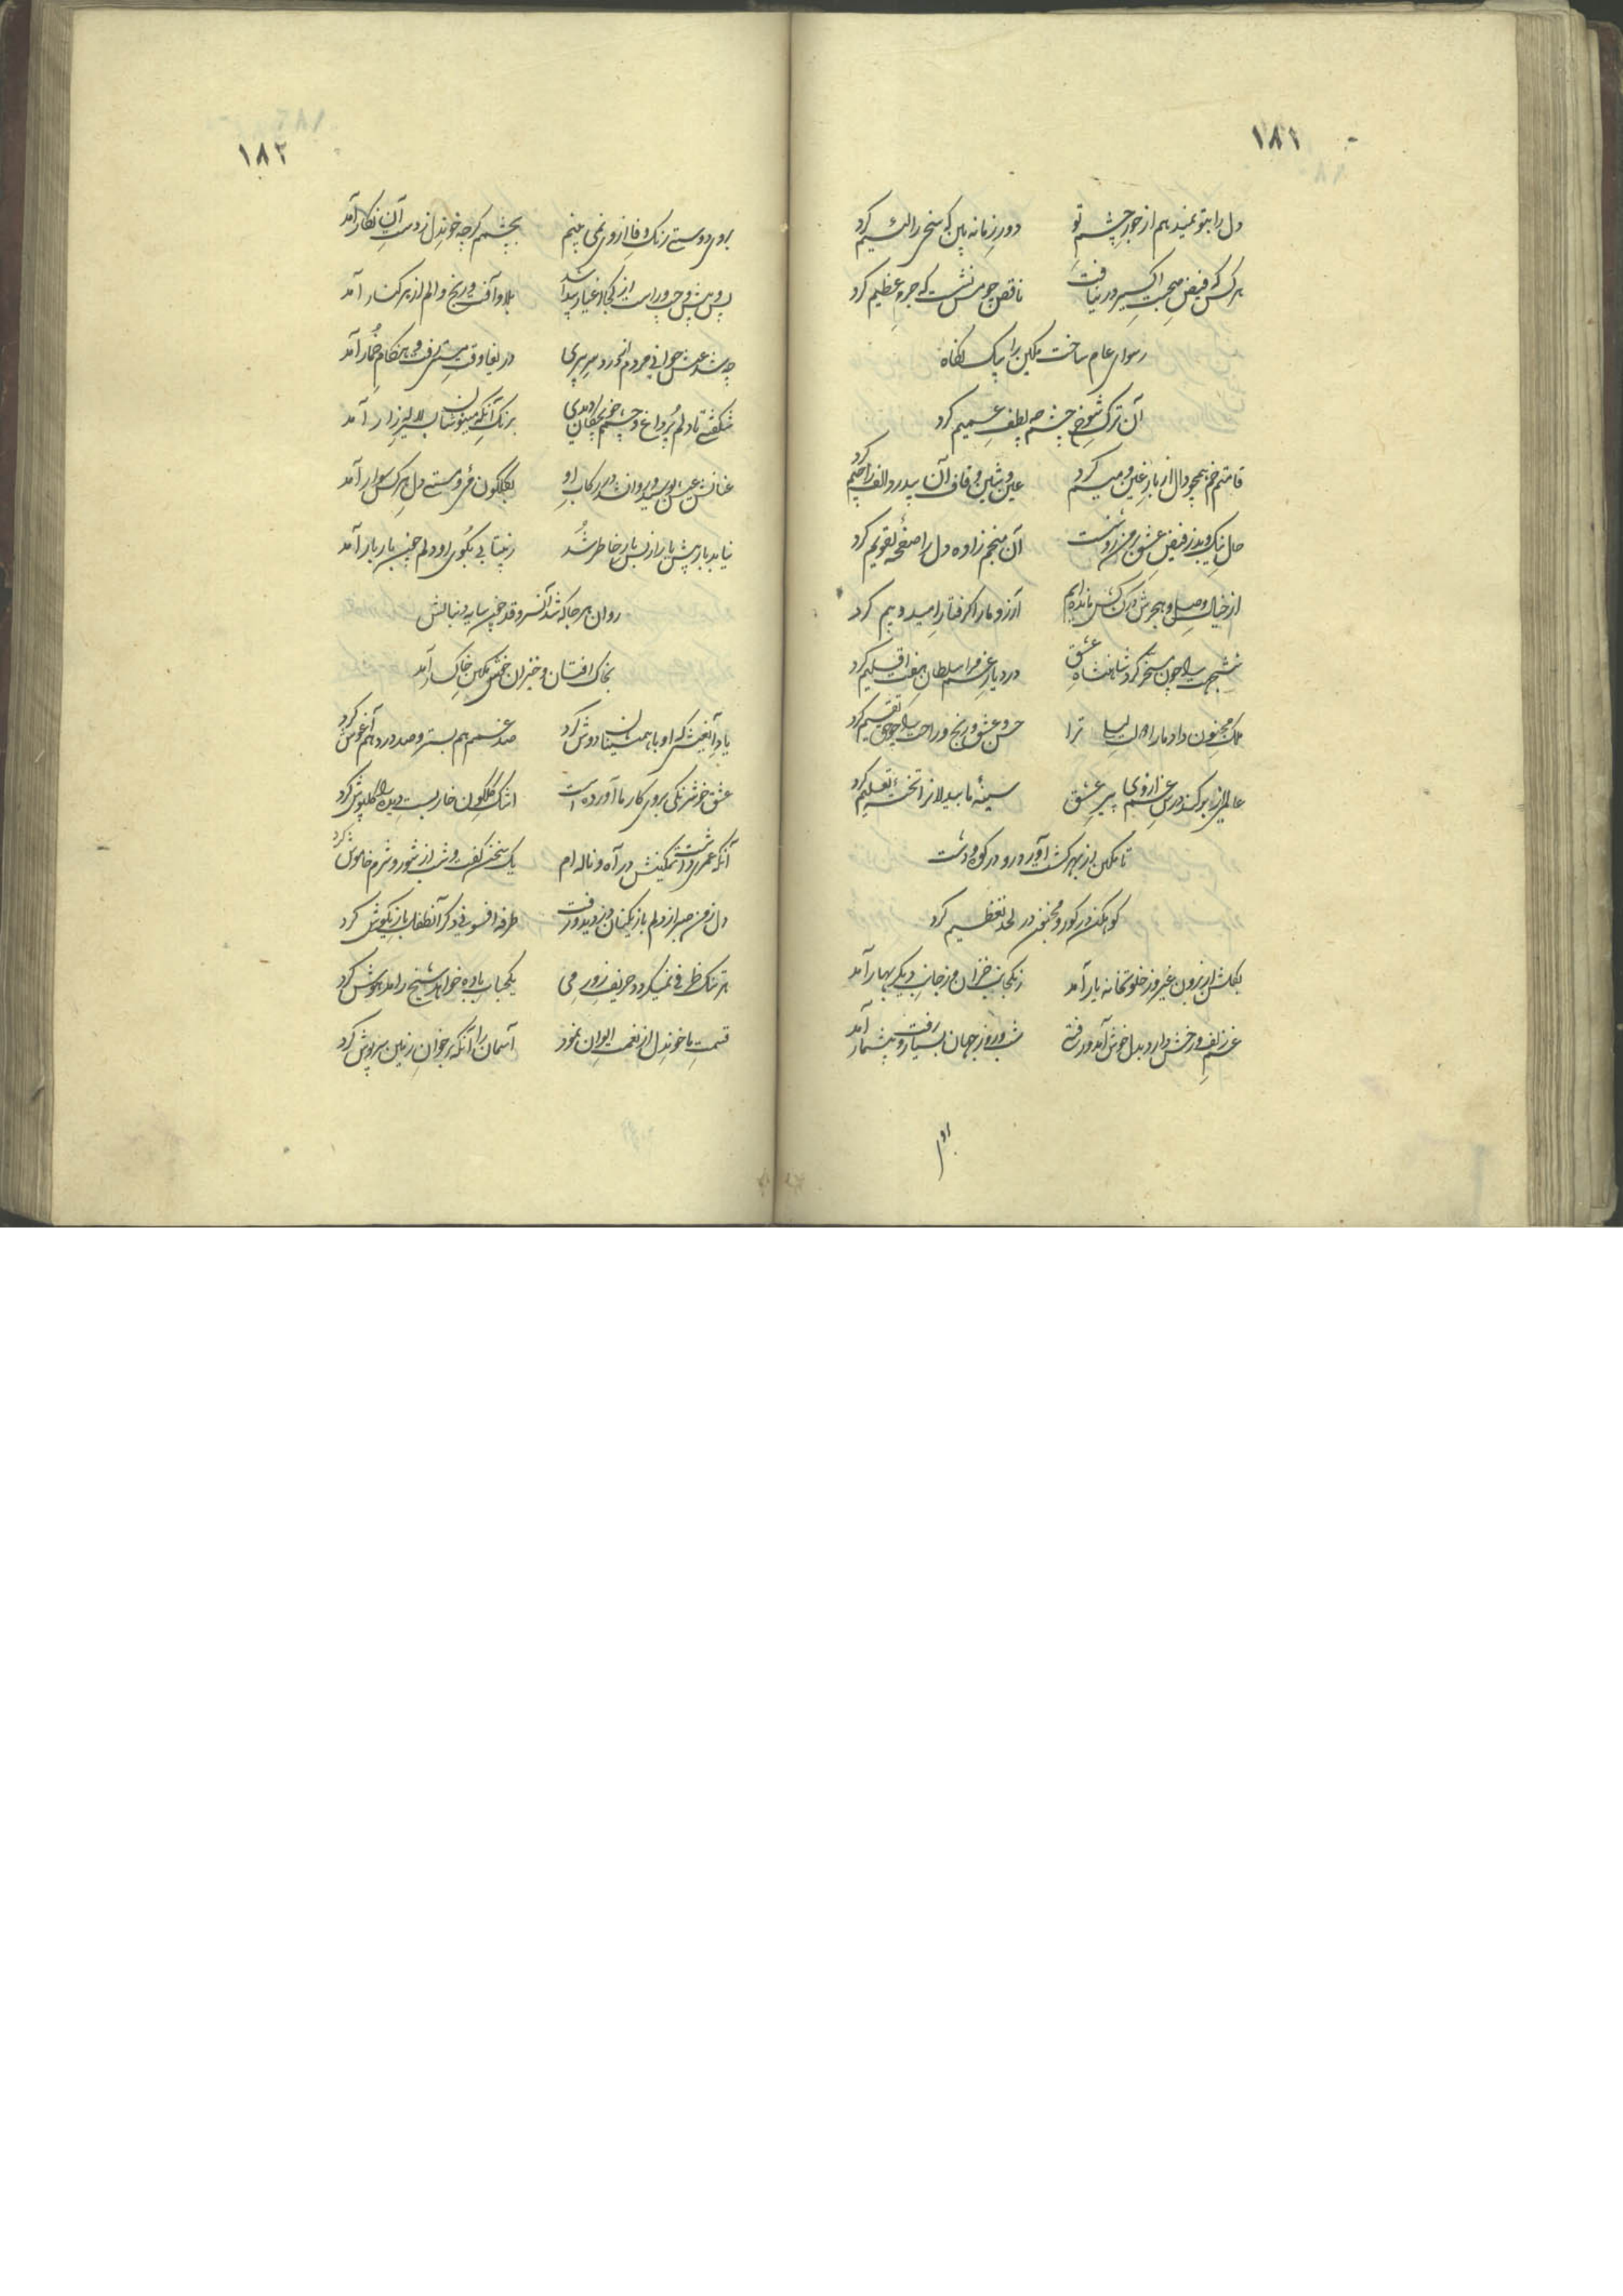 ١٨١
دل را بتو نمیدهم از جور چشم تو دور زمانه بین که سخی را لئیم کرد
هرکس که فیض صحبت اکسیر در نیافت ناقص چو مس نشست که جرم عظیم کرد
رسوای عام ساخت مکین را بیک نگاه
آن ترک شوخ چشم چه لطف عمیم کرد
قامتم خم همچو دال از بار غین و میم کرد عین و شین و قاف آن بیدرد الف را جیم کرد
حال نیک و بد ز فیض عشق بر من روشنست آن منجم زاده دل را صفحه تقویم کرد
از خیال وصل و هجرش در کشاکش مانده‌ایم آرزو ما را گرفتار امید و بیم کرد
ششجهت را چون مسخر کرد شاهنشاه عشق در دیار غم مرا سلطان هفت اقلیم کرد
ملک مجنون داد ما را و لیلی ترا حسن و عشق و رنج و راحت را چو حق تقسیم کرد
عالمی از بر کند درس غم از روی پیر عشق سینهٔ ما بیدلانرا تختهٔ تعلیم کرد
تا مکین از بهر گشت آورد رو در کوه و دشت
کوهکن در گور و مجنون در لحد تعظیم کرد
بگلشن از برون غیر و ز خلوتخانه یار آمد ز یکجانب خزان و ز جانب دیگر بهار آمد
غم زلف و رخش دارد بدل خوش آمد و رفتی شب و روز جهان بسیار رفت و بیشمار آمد
١٨٢
بروی دوستی رنگ وفا از وی نمی بینم بچشمم گرچه خون دل ز دست آن نگار آمد
پس و پیش و چپ و راست از کجا اغیار پیدا شد بلا و آفت و رنج و الم از هر کنار آمد
چه شد عیش جوانی مردم اندر درد سر پیری دریغا وقت مستی رفت و هنگام خمار آمد
شگفتی تا دلم پر داغ و چشم خونچکان دیدی برنگ آنکه مینوشان بسیر لاله زار آمد
عنانش عیش بوسید و روان شد در رکاب او بگلگون می و مستی دل هر کس سوار آمد
نیاید باز پیش یار از بس بار خاطر شد ز بیتابی بکوی او دلم چندین بار بار آمد
روان هر جا که شد آنسرو قد چون سایه دنبالش
بخاک افتان و خیزان خوش مکین خاکسار آمد
یاد آن عیشی که او با همنشینان دوش کرد صد غمم هم بستر و صد درد هم آغوش کرد
عشق خوش رنگی بروی کار ما آورده است اشک گلگون خار بست دیده را گلپوش کرد
آنکه عمری داشت تمکینش در آه و ناله ام یک سخن گفت و شب از شور و شرم خاموش کرد
دل ز من صبر از دلم بازیکنان دزدید و رفت طرفه افسونی دگر آنطفل بازیگوش کرد
هر تنک ظرفی نمیگردد حریف زور می یکحباب باده خواهد شیخ را مدهوش کرد
قسمت ما خون دل از نعمت الوان نمود آسمان را آنکه بر خوان زمین سرپوش کرد